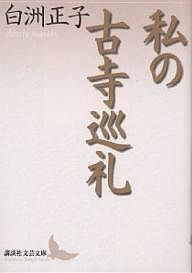 私の
古寺巡礼
白洲正子
講談社文芸文庫